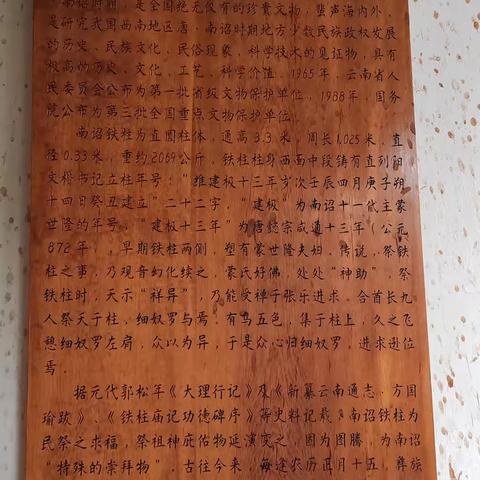 南诏时期,是全国绝无仅有的珍贵文物,蜚声海内外,
是研究我国西南地区唐、南诏时期地方少数民族政权发展
的历史、民族文化、民俗现象、科学技术的见证物,具有
极高的历史、文化、工艺、科学价值。1965年,云南省人
民委员会公布为第一批省级文物保护单位,1988年,国务
院公布为第三批全国重点文物保护单位。
南诏铁柱为直圆柱体,通高3.3米,周长1.025米,直
径0.33米,重约2069公斤,铁柱柱身西面中段铸有直列阳
文楷书记立柱年号:“维建极十三年岁次壬辰四月庚子朔
十四日癸丑建立”二十二字,“建极”为南诏十一代主蒙
世隆的年号。“建极十三年”为唐懿宗咸通十三年(公元
872年),早期铁柱两侧,塑有蒙世隆夫妇。传说,祭铁
柱之事,乃观音幻化续之,蒙氏好佛,处处“神助”。祭
铁柱时,天示“祥异”,乃能受禅于张乐进求。合首长九
人祭天于柱,细奴罗与焉。有鸟五色,集于柱上,久之飞
憩细奴罗左肩,众以为异,于是众心归细奴罗,进求逊位
焉。
据元代郭松年《大理行记》及《新纂云南通志·方国
瑜跋》、《铁柱庙记功德碑序》等史料记载:南诏铁柱为
民祭之求福,祭祖神庇佑物延演变之,因为图腾,为南诏
“特殊的崇拜物”。古往今来,每逢农历正月十五,彝族